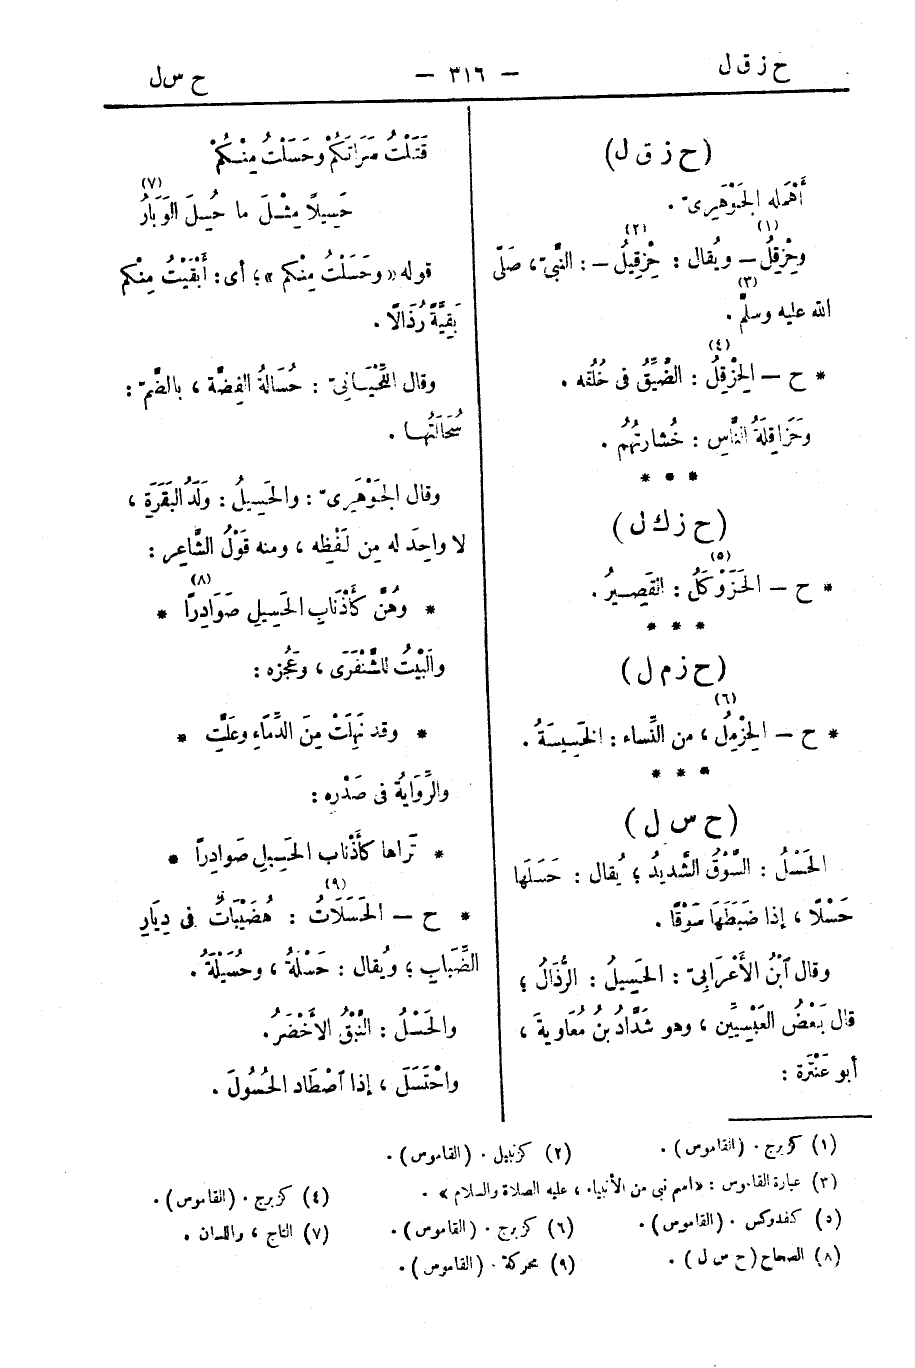 ح ز ق ل
— ٣١٦ —
ح س ل
(ح ز ق ل)
أَهْمَله الجَوْهَرِىّ .
وحِزْقِلُ(١) – ويُقال : حِزْقِيلُ(٢) – : النَّبِىّ ، صَلّى
الله عليه وسلَّم(٣) .
* ح – الحِزْقِلُ(٤) : الضَّيِّقُ فى خُلُقه .
وحَزَاقِلَةُ النَّاسِ : خُشارتُهُم .
* * *
(ح ز ك ل)
* ح – الحَزَوْكَلُ(٥) : القَصِـيرُ .
* * *
(ح ز م ل)
* ح – الحِزْمِلُ(٦) ، من النِّساء : الخَسِيسَةُ .
* * *
(ح س ل)
الحَسْلُ : السَّوْقُ الشَّدِيدُ ؛ يُقال : حَسَلَها
حَسْلًا ، إذا ضَبَطَهَا سَوْقًا .
وقال ٱبْنُ الأَعْرَابِىّ : الحَسِيلُ : الرُّذَالُ ؛
قال بَعْضُ العَبْسِيِّين ، وهو شَدَّادُ بنُ مُعَاوِيةَ ،
أبو عَنْتَرة :
قَتَلْتُ سَرَاتَكُمْ وحَسَلْتُ مِنْـكُمْ
حَسِيلًا مِثْـلَ ما حُسِلَ الوَبَارُ(٧)
قوله «وحَسَلْتُ مِنْكم» ؛ أى : أَبْقَيْتُ مِنْكم
بَقِيَّةً رُذَالًا .
وقال اللِّحْيَـانِىّ : حُسَالةُ الفِضَّة ، بالضَّمّ :
سُحَالَتُهـا .
وقال الجَوْهَرِىّ : والحَسِيلُ : وَلَدُ البَقَرَةِ ،
لا واحِدَ له مِن لَفْظِه ، ومنه قَوْلُ الشَّاعِر :
* وهُنَّ كَأَذْنَابِ الحَسِيلِ صَوَادِرًا(٨) *
والبَيْتُ للشَّنْفَرَى ، وعَجُزه :
* وقد نَهِلَتْ مِنَ الدِّمَاءِ وعَلَّتِ *
والرِّوَايَةُ فى صَدْرِه :
* تَراها كأَذْناب الحَسِيلِ صَوادِرًا *
* ح – الحَسَلَاتُ(٩) : هُضَيْبَاتٌ فى دِيَارِ
الضِّبَابِ ؛ ويُقال : حَسْلَةُ ، وحُسَيْلَةُ .
والحَسْلُ : النَّبْقُ الأَخْضَرُ .
واحْتَسَلَ ، إذا ٱصْطَاد الحُسُولَ .
(١) كزبرج . (القاموس) .
(٢) كزنبيل . (القاموس) .
(٣) عبارة القاموس : «اسم نبى من الأنبياء ، عليه الصلاة والسلام» .
(٤) كزبرج . (القاموس) .
(٥) كفدوكس . (القاموس) .
(٦) كزبرج . (القاموس) .
(٧) التاج ، واللسان .
(٨) الصحاح (ح س ل) .
(٩) محركة . (القاموس) .